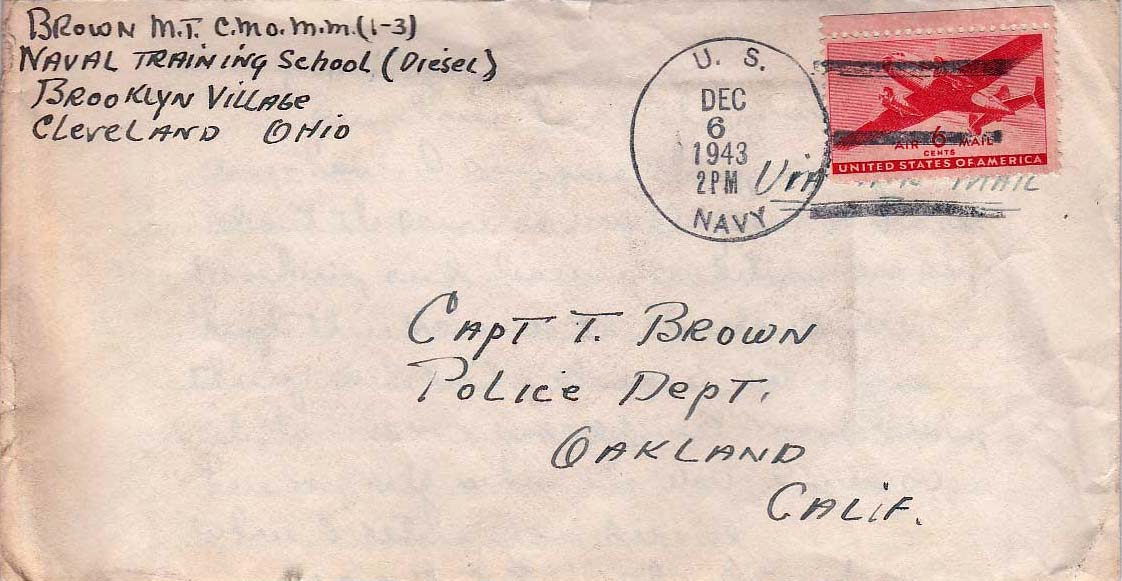 BROWN M.T. C.MO.M.M.(1-3)
NAVAL TRAINING School (Diesel)
BROOKLYN VILLAGE
CLeveLAND OHIO
U. S.
DEC
6
1943
2PM
NAVY
AIR 6 MAIL
CENTS
UNITED STATES OF AMERICA
VIA AIR MAIL
CAPT T. BROWN
POLICE DEPT.
OAKLAND
CALIF.